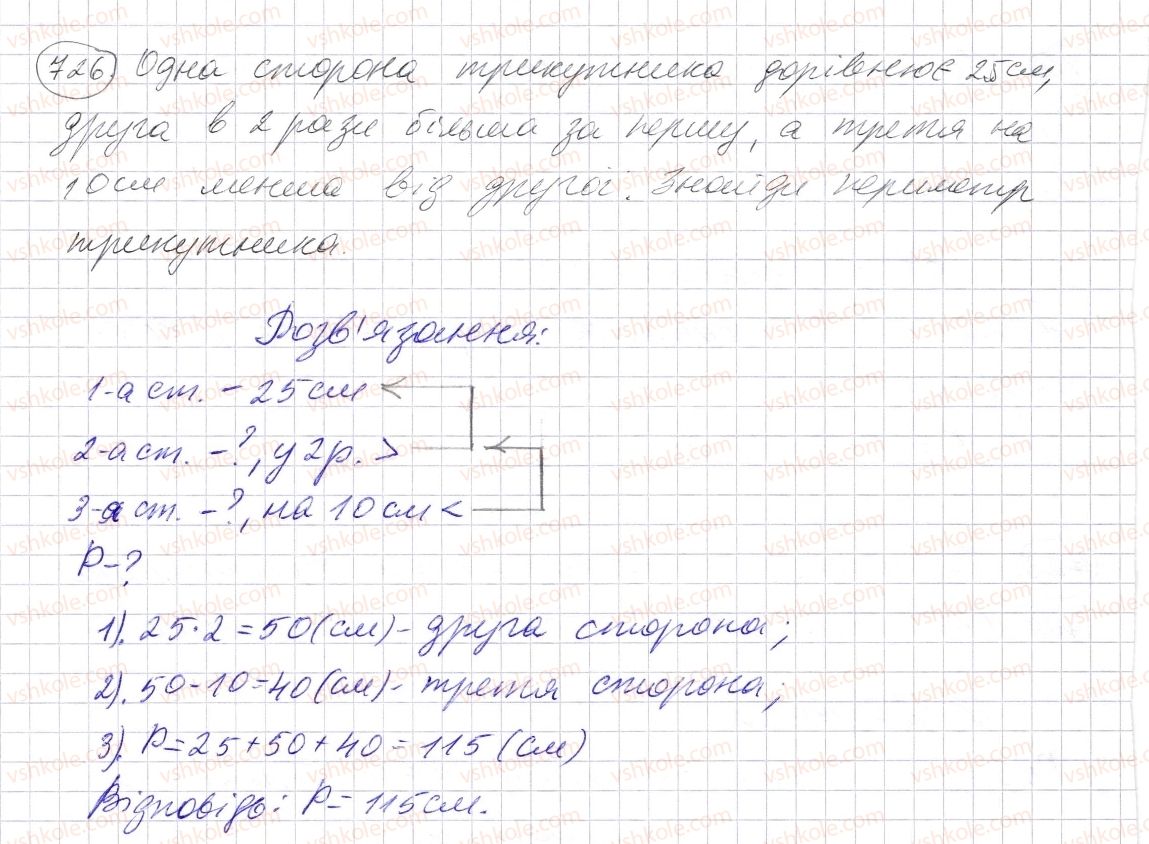 726 Одна сторона трикутника дорівнює 25см,
друга в 2 рази більша за першу, а третя на
10см менша від другої. Знайди периметр
трикутника.
Розв'язання:
1-а ст. - 25см
2-а ст. -?, у 2р. >
3-я ст. -?, на 10см <
P-?
1). 25·2=50(см)- друга сторона;
2). 50-10=40(см)- третя сторона;
3). P=25+50+40=115(см)
Відповідь: P=115см.